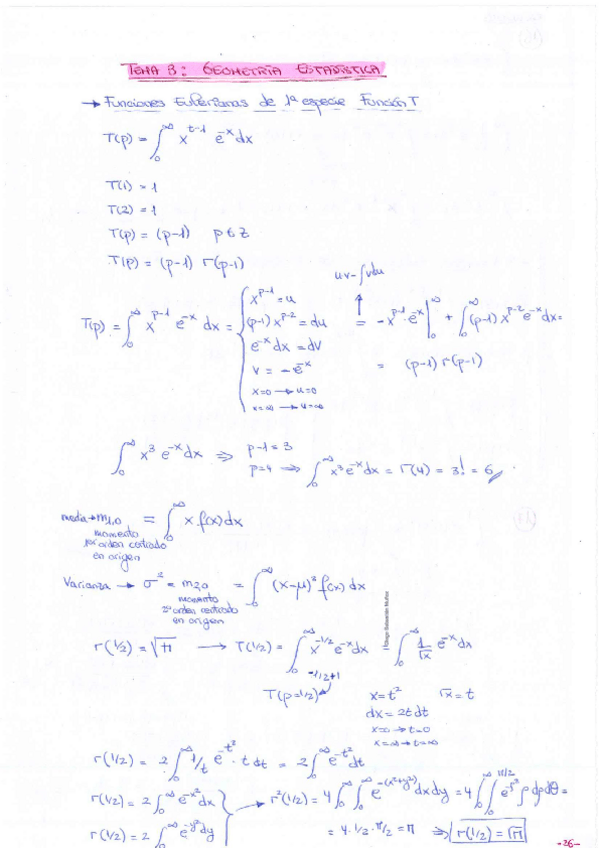 TEMA 3: GEOMETRÍA ESTADÍSTICA
→ Funciones Eulerianas de 1ª especie Función Γ
Γ(p) = ∫₀^∞ x^(t-1) e^(-x) dx
Γ(1) = 1
Γ(2) = 1
Γ(p) = (p-1) p∈Z
Γ(p) = (p-1) Γ(p-1)
uv-∫vdu
Γ(p) = ∫₀^∞ x^(p-1) e^(-x) dx = { x^(p-1) = u = -x^(p-1)·e^(-x) |₀^∞ + ∫₀^∞ (p-1) x^(p-2) e^(-x) dx =
(p-1) x^(p-2) = du
e^(-x) dx = dv
v = -e^(-x)
x=0 → u=0
x=∞ → u=∞
= (p-1) Γ(p-1)
∫₀^∞ x³ e^(-x) dx ⇒ p-1=3
p=4 ⇒ ∫₀^∞ x³ e^(-x) dx = Γ(4) = 3! = 6
media → m₁,₀ = ∫₀^∞ x·f(x) dx
momento
1er orden centrado
en origen
Varianza → σ² = m₂,₀ = ∫₀^∞ (x-μ)² f(x) dx
momento
2º orden centrado
en origen
Γ(1/2) = √π → Γ(1/2) = ∫₀^∞ x^(-1/2) e^(-x) dx = ∫₀^∞ 1/√x e^(-x) dx
-1/2+1
Γ(p=1/2)
x = t² √x = t
dx = 2t dt
x=0 → t=0
x=∞ → t=∞
Γ(1/2) = 2 ∫₀^∞ 1/t e^(-t²) · t dt = 2 ∫₀^∞ e^(-t²) dt
Γ(1/2) = 2 ∫₀^∞ e^(-x²) dx
Γ(1/2) = 2 ∫₀^∞ e^(-y²) dy
→ Γ²(1/2) = 4 ∫₀^∞ ∫₀^∞ e^(-(x²+y²)) dx dy = 4 ∫₀^∞ ∫₀^(π/2) e^(-ρ²) ρ dρ dθ =
= 4·1/2·π/2 = π ⇒ Γ(1/2) = √π
-26-